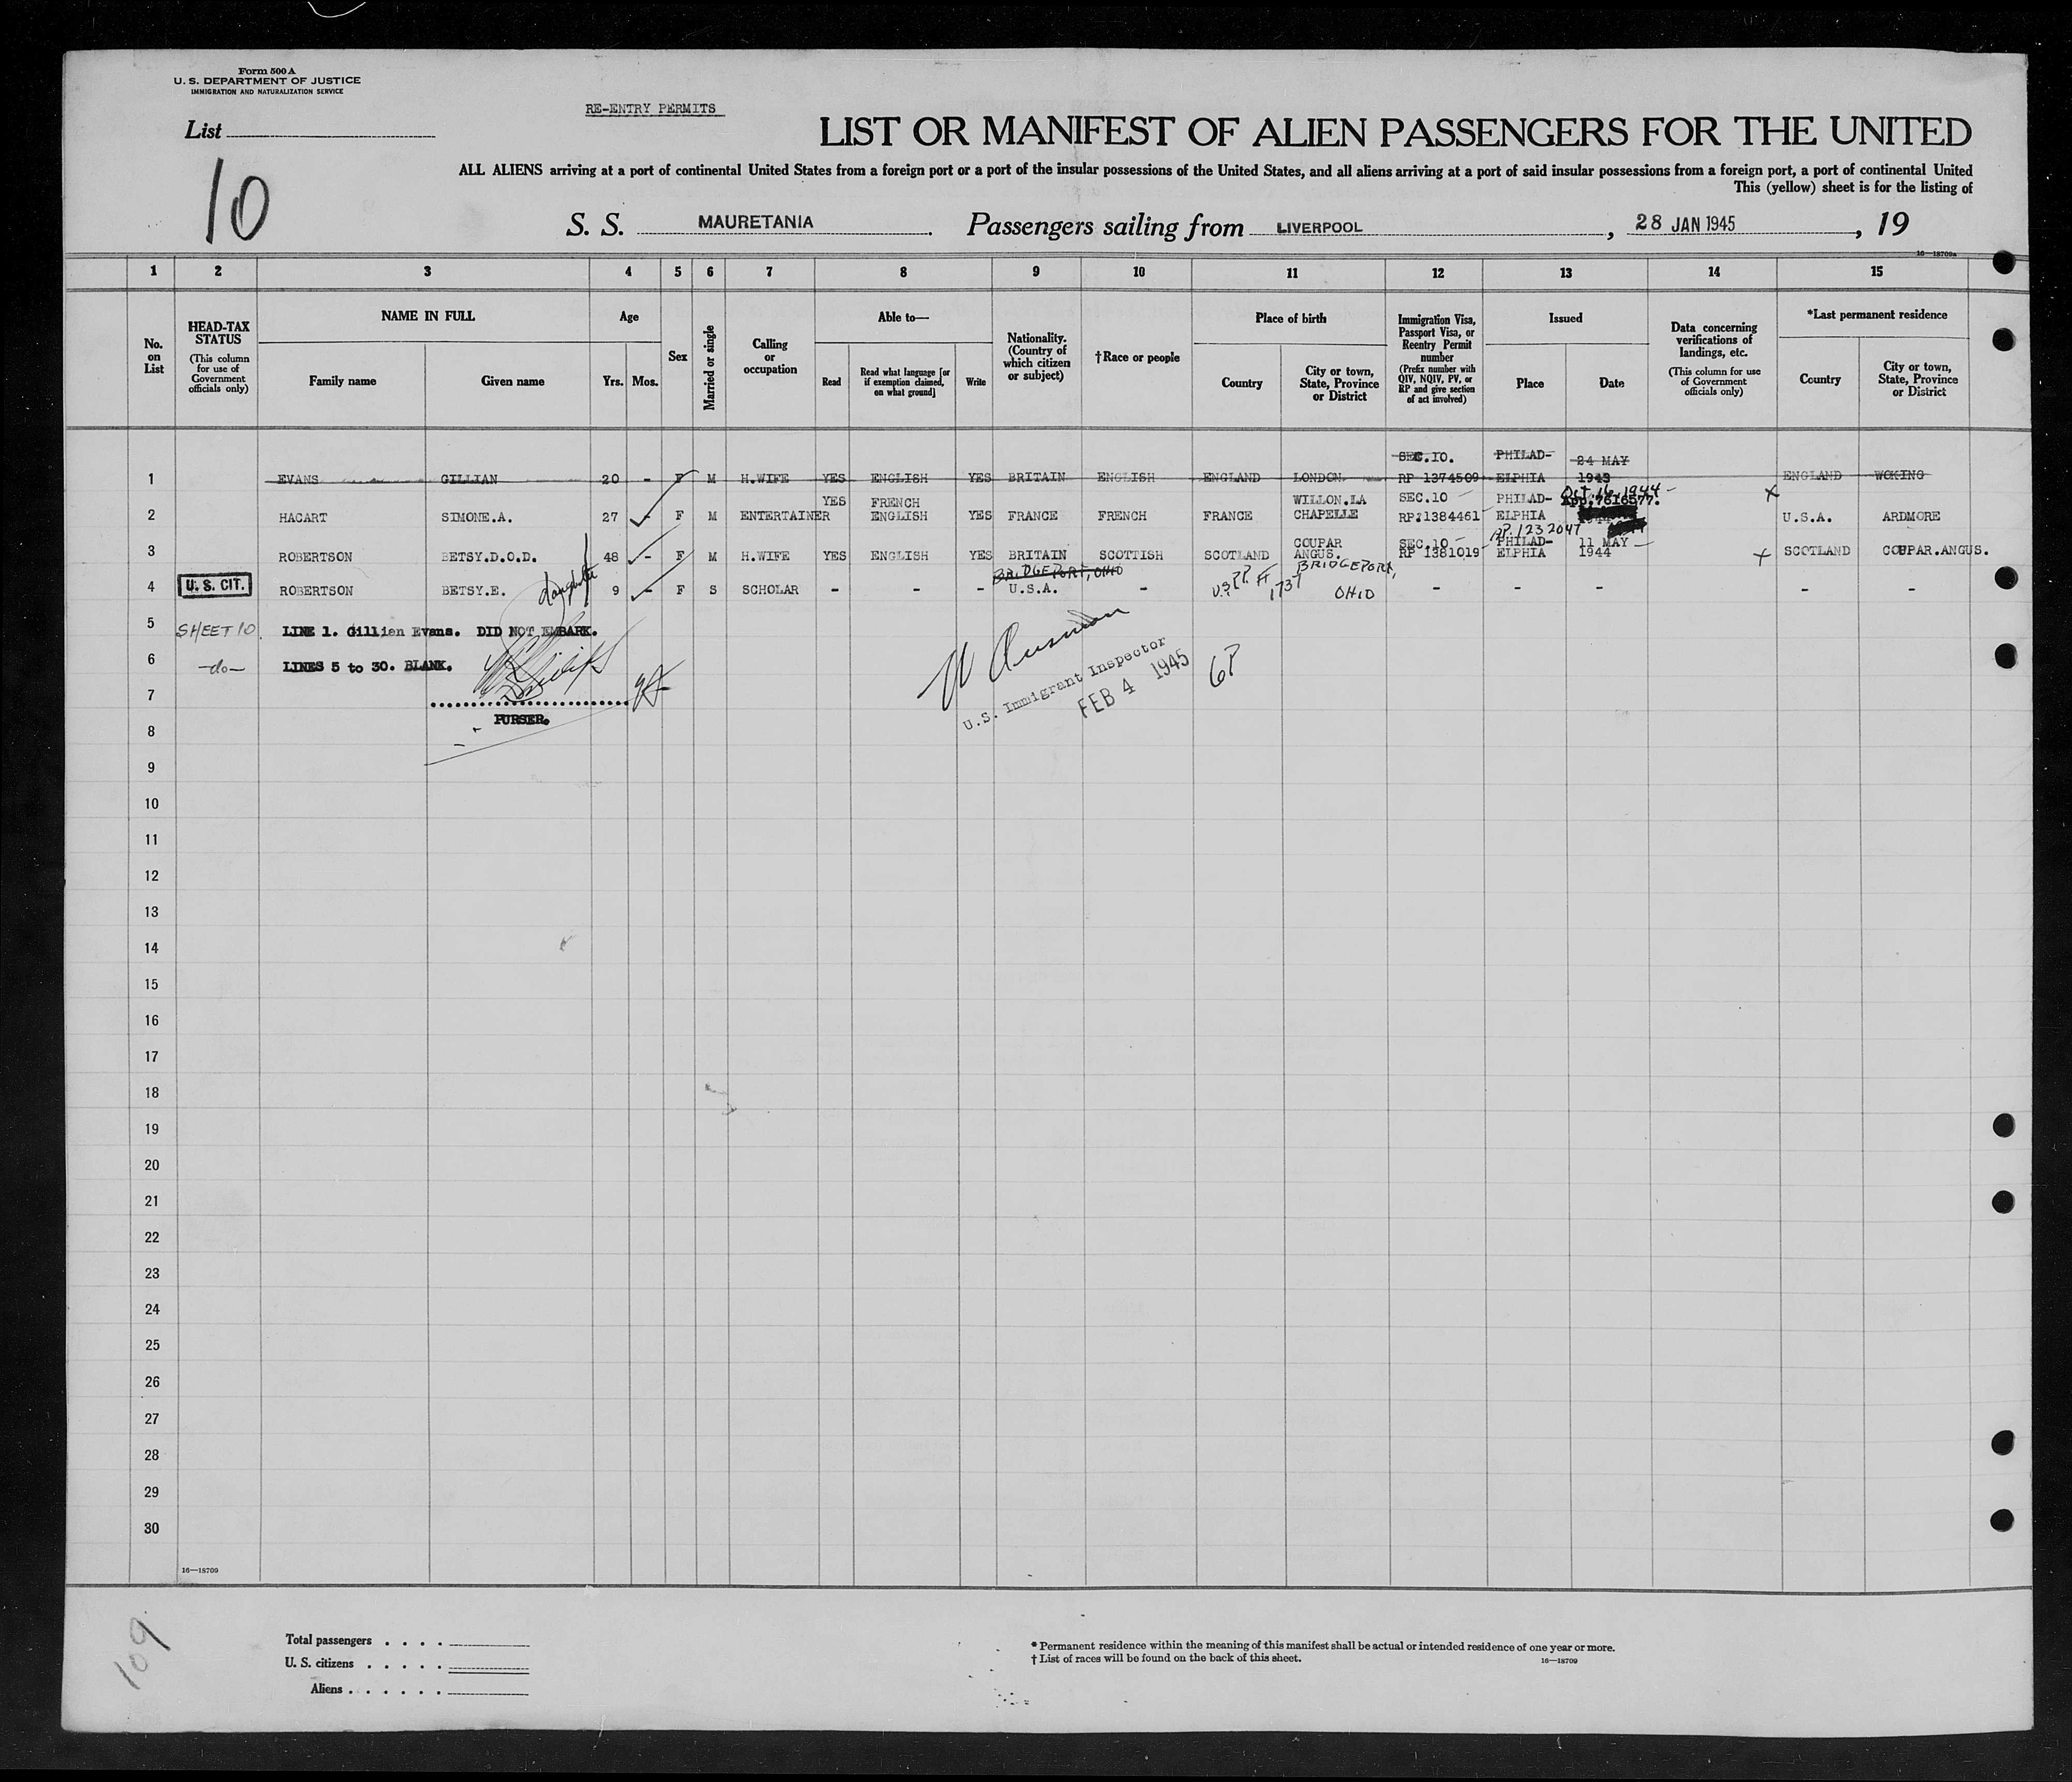 Form 500 A
U. S. DEPARTMENT OF JUSTICE
IMMIGRATION AND NATURALIZATION SERVICE
RE-ENTRY PERMITS
List
10
LIST OR MANIFEST OF ALIEN PASSENGERS FOR THE UNITED
ALL ALIENS arriving at a port of continental United States from a foreign port or a port of the insular possessions of the United States, and all aliens arriving at a port of said insular possessions from a foreign port, a port of continental United
This (yellow) sheet is for the listing of
S. S. MAURETANIA. Passengers sailing from LIVERPOOL, 28 JAN 1945, 19
16—18709a
1 2 3 4 5 6 7 8 9 10 11 12 13 14 15
No. on List
HEAD-TAX STATUS (This column for use of Government officials only)
NAME IN FULL
Family name
Given name
Age
Yrs.
Mos.
Sex
Married or single
Calling or occupation
Able to—
Read
Read what language [or if exemption claimed, on what ground]
Write
Nationality. (Country of which citizen or subject)
†Race or people
Place of birth
Country
City or town, State, Province or District
Immigration Visa, Passport Visa, or Reentry Permit number (Prefix number with QIV, NQIV, PV, or RP and give section of act involved)
Issued
Place
Date
Data concerning verifications of landings, etc. (This column for use of Government officials only)
*Last permanent residence
Country
City or town, State, Province or District
SEC.10. PHILAD- 24 MAY
1 EVANS GILLIAN 20 - F M H.WIFE YES ENGLISH YES BRITAIN ENGLISH ENGLAND LONDON RP 1374509 ELPHIA 1943 ENGLAND WOKING
YES FRENCH WILLON.LA SEC.10 PHILAD- Oct. 16, 1944 App.7616577.
2 HAGART SIMONE.A. 27 - F M ENTERTAINER ENGLISH YES FRANCE FRENCH FRANCE CHAPELLE RP:1384461 ELPHIA U.S.A. ARDMORE
RP. 1232047
COUPAR SEC.10 PHILAD- 11 MAY
3 ROBERTSON BETSY.D.O.D. 48 - F M H.WIFE YES ENGLISH YES BRITAIN SCOTTISH SCOTLAND ANGUS. RP 1381019 ELPHIA 1944 SCOTLAND COUPAR.ANGUS.
BRIDGEPORT, OHIO BRIDGEPORT,
4 U. S. CIT. ROBERTSON BETSY.E. daughter 9 - F S SCHOLAR - - - U.S.A. - U.S. PP. # 1737 OHIO - - - - -
5 SHEET 10. LINE 1. Gillien Evans. DID NOT EMBARK.
6 -do- LINES 5 to 30. BLANK.
7
PURSER.
U.S. Immigrant Inspector
FEB 4 1945
6P
8
9
10
11
12
13
14
15
16
17
18
19
20
21
22
23
24
25
26
27
28
29
30
16—18709
109
Total passengers . . . .
U. S. citizens . . . . .
Aliens . . . . . .
* Permanent residence within the meaning of this manifest shall be actual or intended residence of one year or more.
† List of races will be found on the back of this sheet.
16—18709